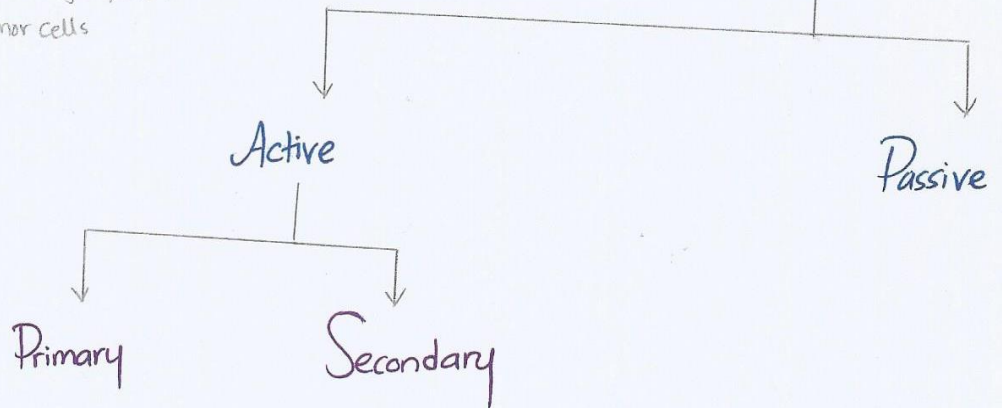 cells
Active
Passive
Primary
Secondary